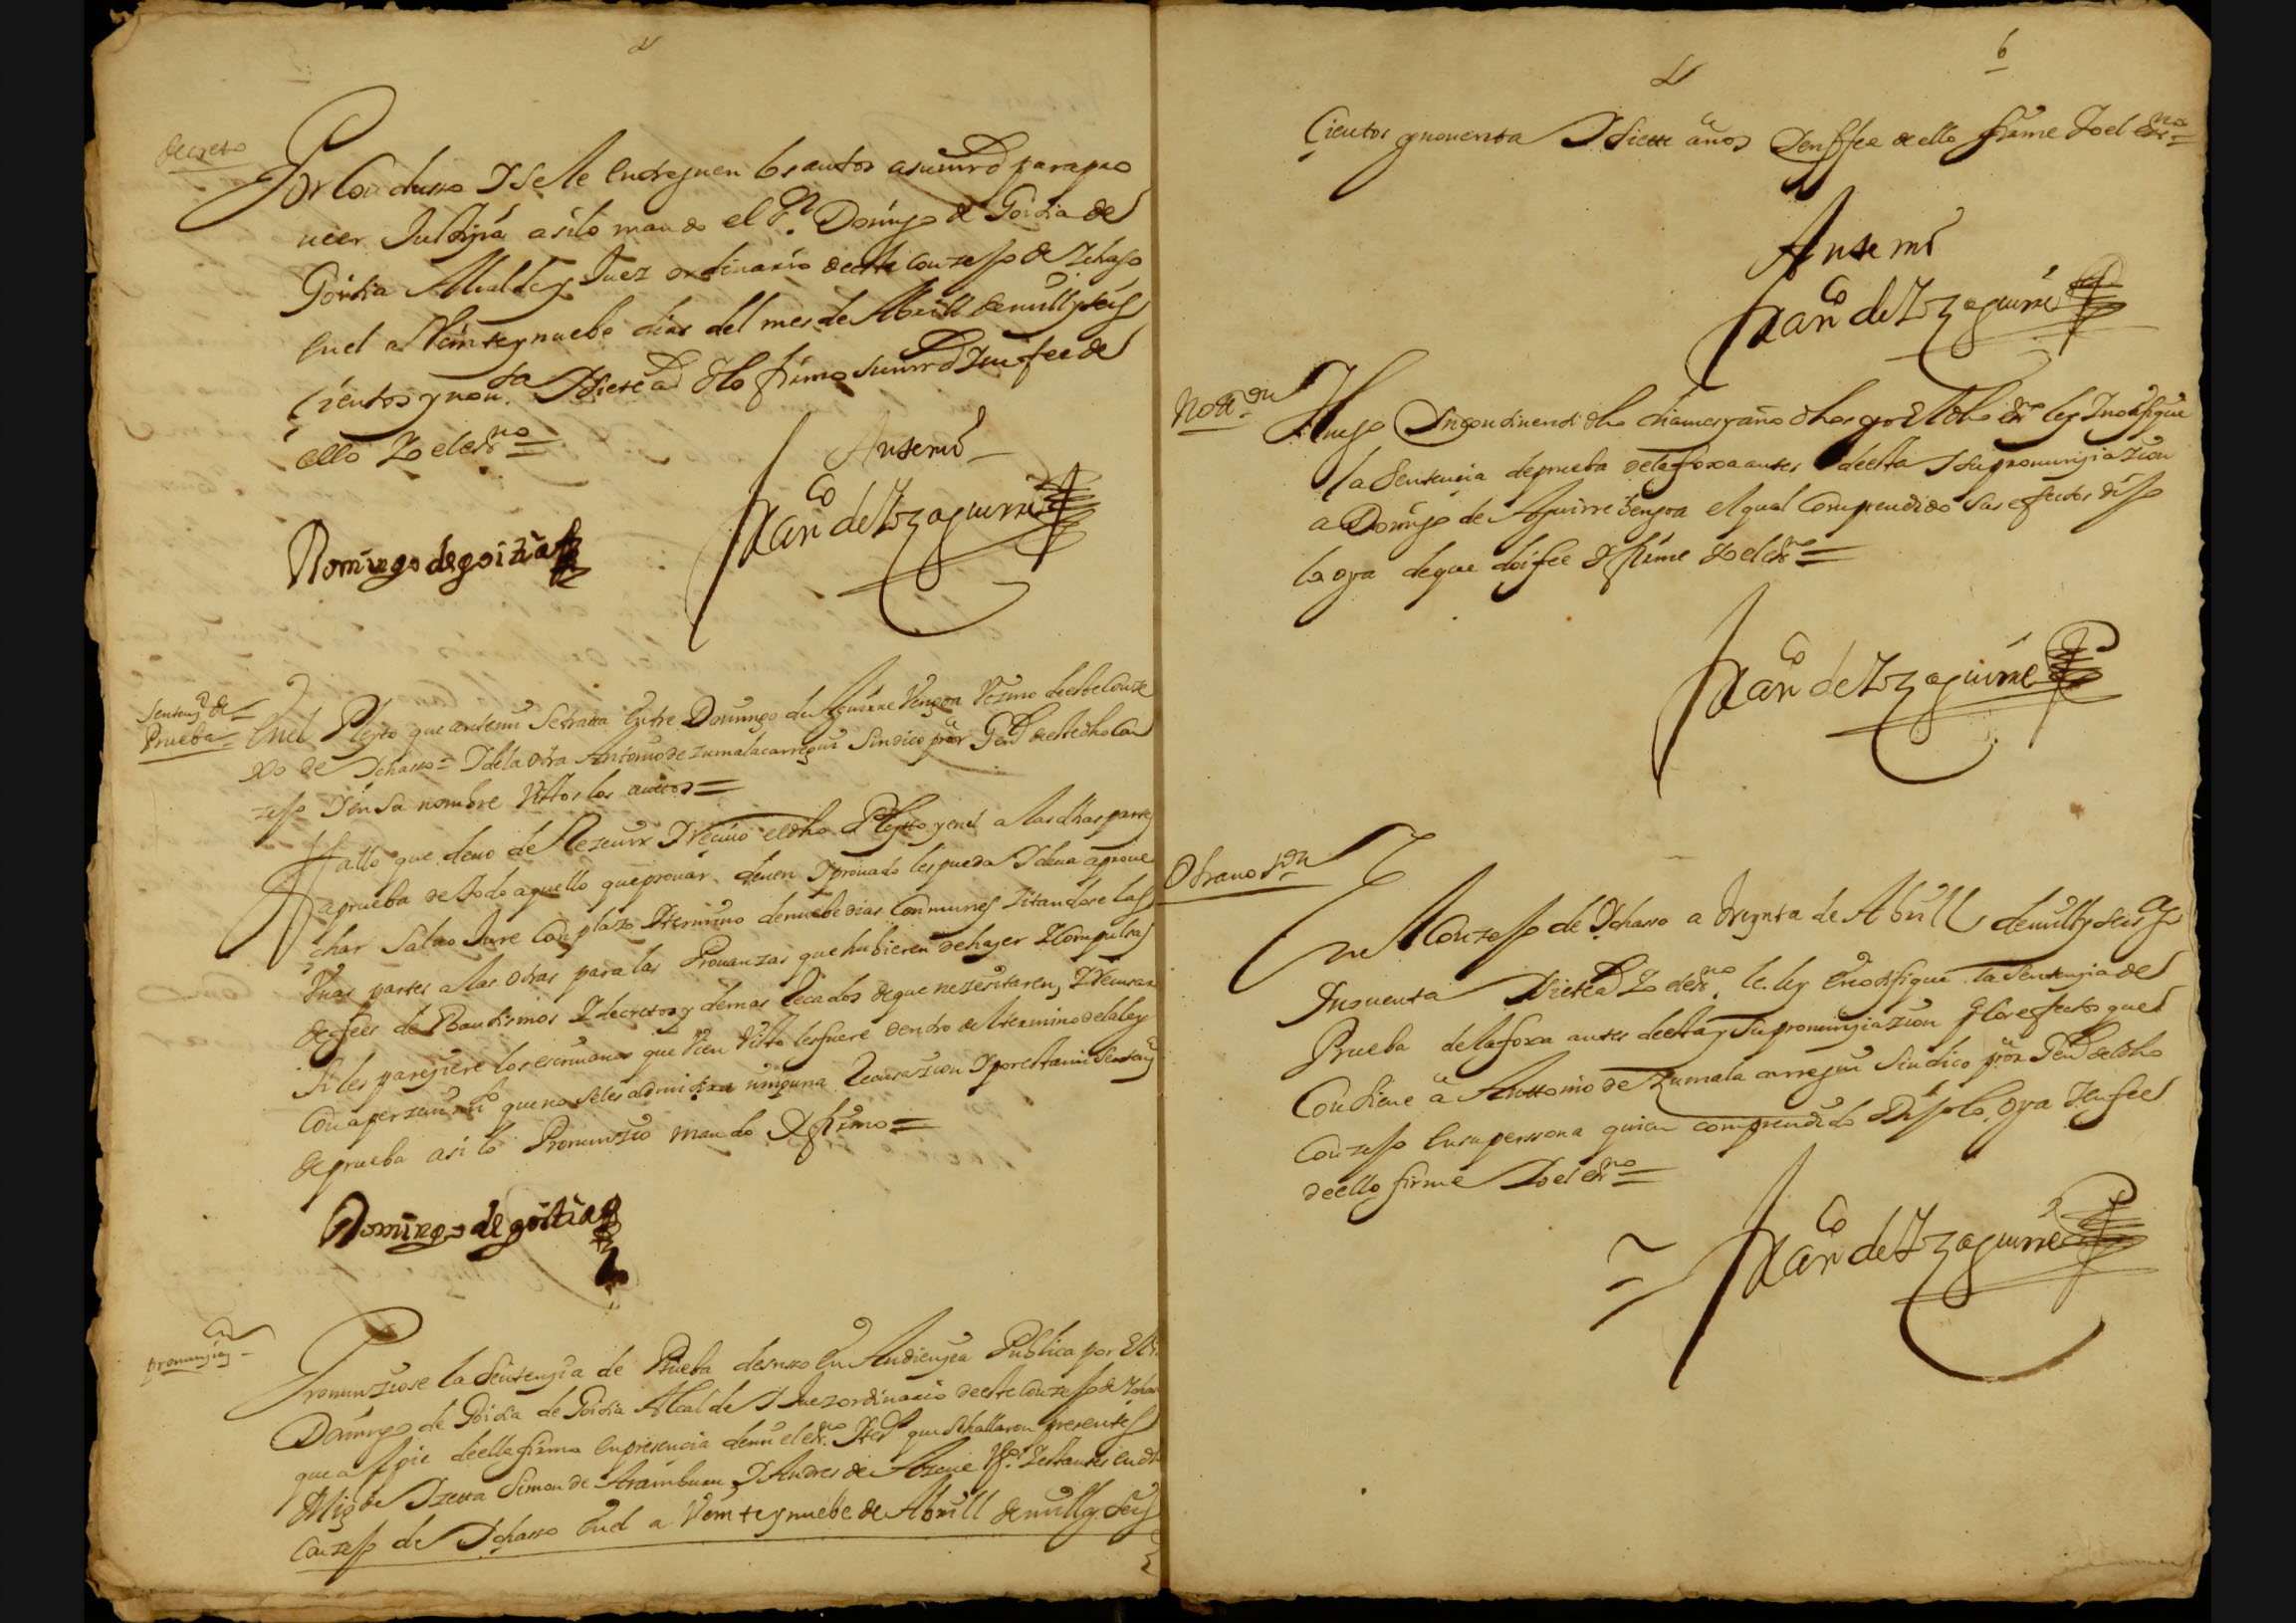 decreto
Por Concluso Y se le entreguen los autos a su mrd para pro
ueer Justiçia asi lo mando el Sr Domingo de Goitia de
Goitia Alcalde y Juez ordinario deeste Conzejo de Ichaso
En el a Veinte y nuebe dias del mes de Abrill de mill y seis
cientos y nou.ta Y siete as Y lo firmo su mrd Y en fee de
ello Yo el essno
Ante mi
Domingo de goitia
Franco de Yzaguirre
Sentenςa de
Prueba
En el Pleyto que ante mi Se trata Entre Domingo de Aguirre Vengoa Vezino deeste Conze
xo de Ychasso = Y de la otra Antonio de Zumalacarregui Sindico pror Genl deeste dho Con
zejo Y en Su nombre Vistos los autos =
Fallo que deuo de Rezeuir Y Reciuo el dho Pleyto y en el a las dhas partes
a prueba de todo aquello que prouar deuen Y prouado les pueda Y deua aproue
char Saluo Jure Con plazo Y termino de nuebe dias Comunes Zitandose las
Vnas partes a las otras para las Prouanzas que hubieren de hazer Y Compulsas
de fees de Bautismos Y decretos y demas Recados de que nezesitaren, Y Recusar
Si les pareziere los escriuanos que Vien Visto les fuere dentro del termino de la ley
Con aperzeuimto que no Se les admitira ninguna Recusazion Y por esta mi Sentenςa
de prueba asi lo Pronunzio mando Y firmo =
Domingo de goitia
pronunziaςn
Pronunziose la Sentenzia de Prueba desuso En Audienzia Publica por el Sr
Domingo de Goitia de Goitia Alcalde Y Juez ordinario deeste Conzejo de Ichaso
que al pie de ella firmo En presencia de mi el essno Y tesos que Se hallaron presentes
Migl de Yzetta Simon de Aramburu, Y Andres de Vzos Y estantes en dho
Conzejo de Ychasso En el a Veinte y nuebe de Abrill de mill y Seis
6
Cientos y nouenta Y Siette años Y en ffee de ello firme Yo el essno =
Ante mi
Franco de Yzaguirre
Nottςon
Luego Yncontinenti dho dia mes y año dhos yo el dho essno ley Y notifique
la Sentencia de prueba de la foxa antes deesta Y Su pronunziazion
a Domingo de Aguirre Vengoa el qual Comprendido Sus efectos dijo
la oya de que doi fee Y firme Yo el essno =
Franco de Yzaguirre
Otra noton
En el Conzejo de Ychasso a treynta de Abrill de mill y seis zs
y nouenta Y siete as Yo el essno le ley E notifique la Sentenzia de
Prueba de la foxa antes deesta y Su pronunziazion Y los efectos que
Contiene a Anttonio de Zumalacarregui Sindico pror Genl del dho
Conzejo En su perssona quien comprendido Dijo lo oya Y en fee
de ello firme Yo el essno =
Franco de Yzaguirre